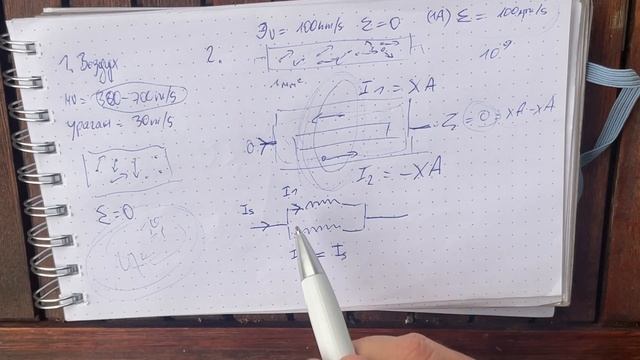 1, Воздух
НУ = 380-700m/s
ураган = 30m/s
Σ = 0
2.
Эv = 100km/s Σ = 0
(1A) Σ = 100
10⁹
1 мм²
I₁ = XA
0
Σ = 0 = XA - XA
I₂ = -XA
I₁
Is
I = Is